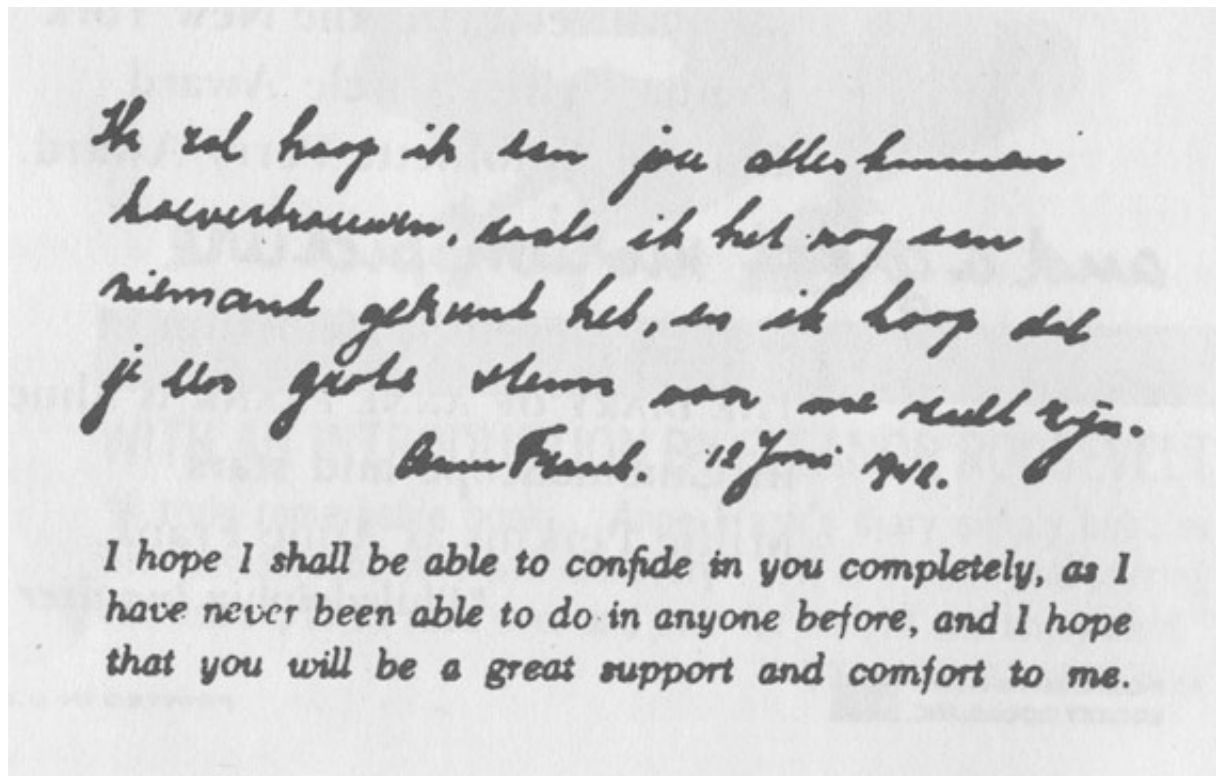 Ik zal hoop ik aan jou alles kunnen
toevertrouwen, zoals ik het nog aan
niemand gekunt heb, en ik hoop dat
je een grote steun voor me zult zijn.
Anne Frank. 12 Juni 1942.
I hope I shall be able to confide in you completely, as I
have never been able to do in anyone before, and I hope
that you will be a great support and comfort to me.